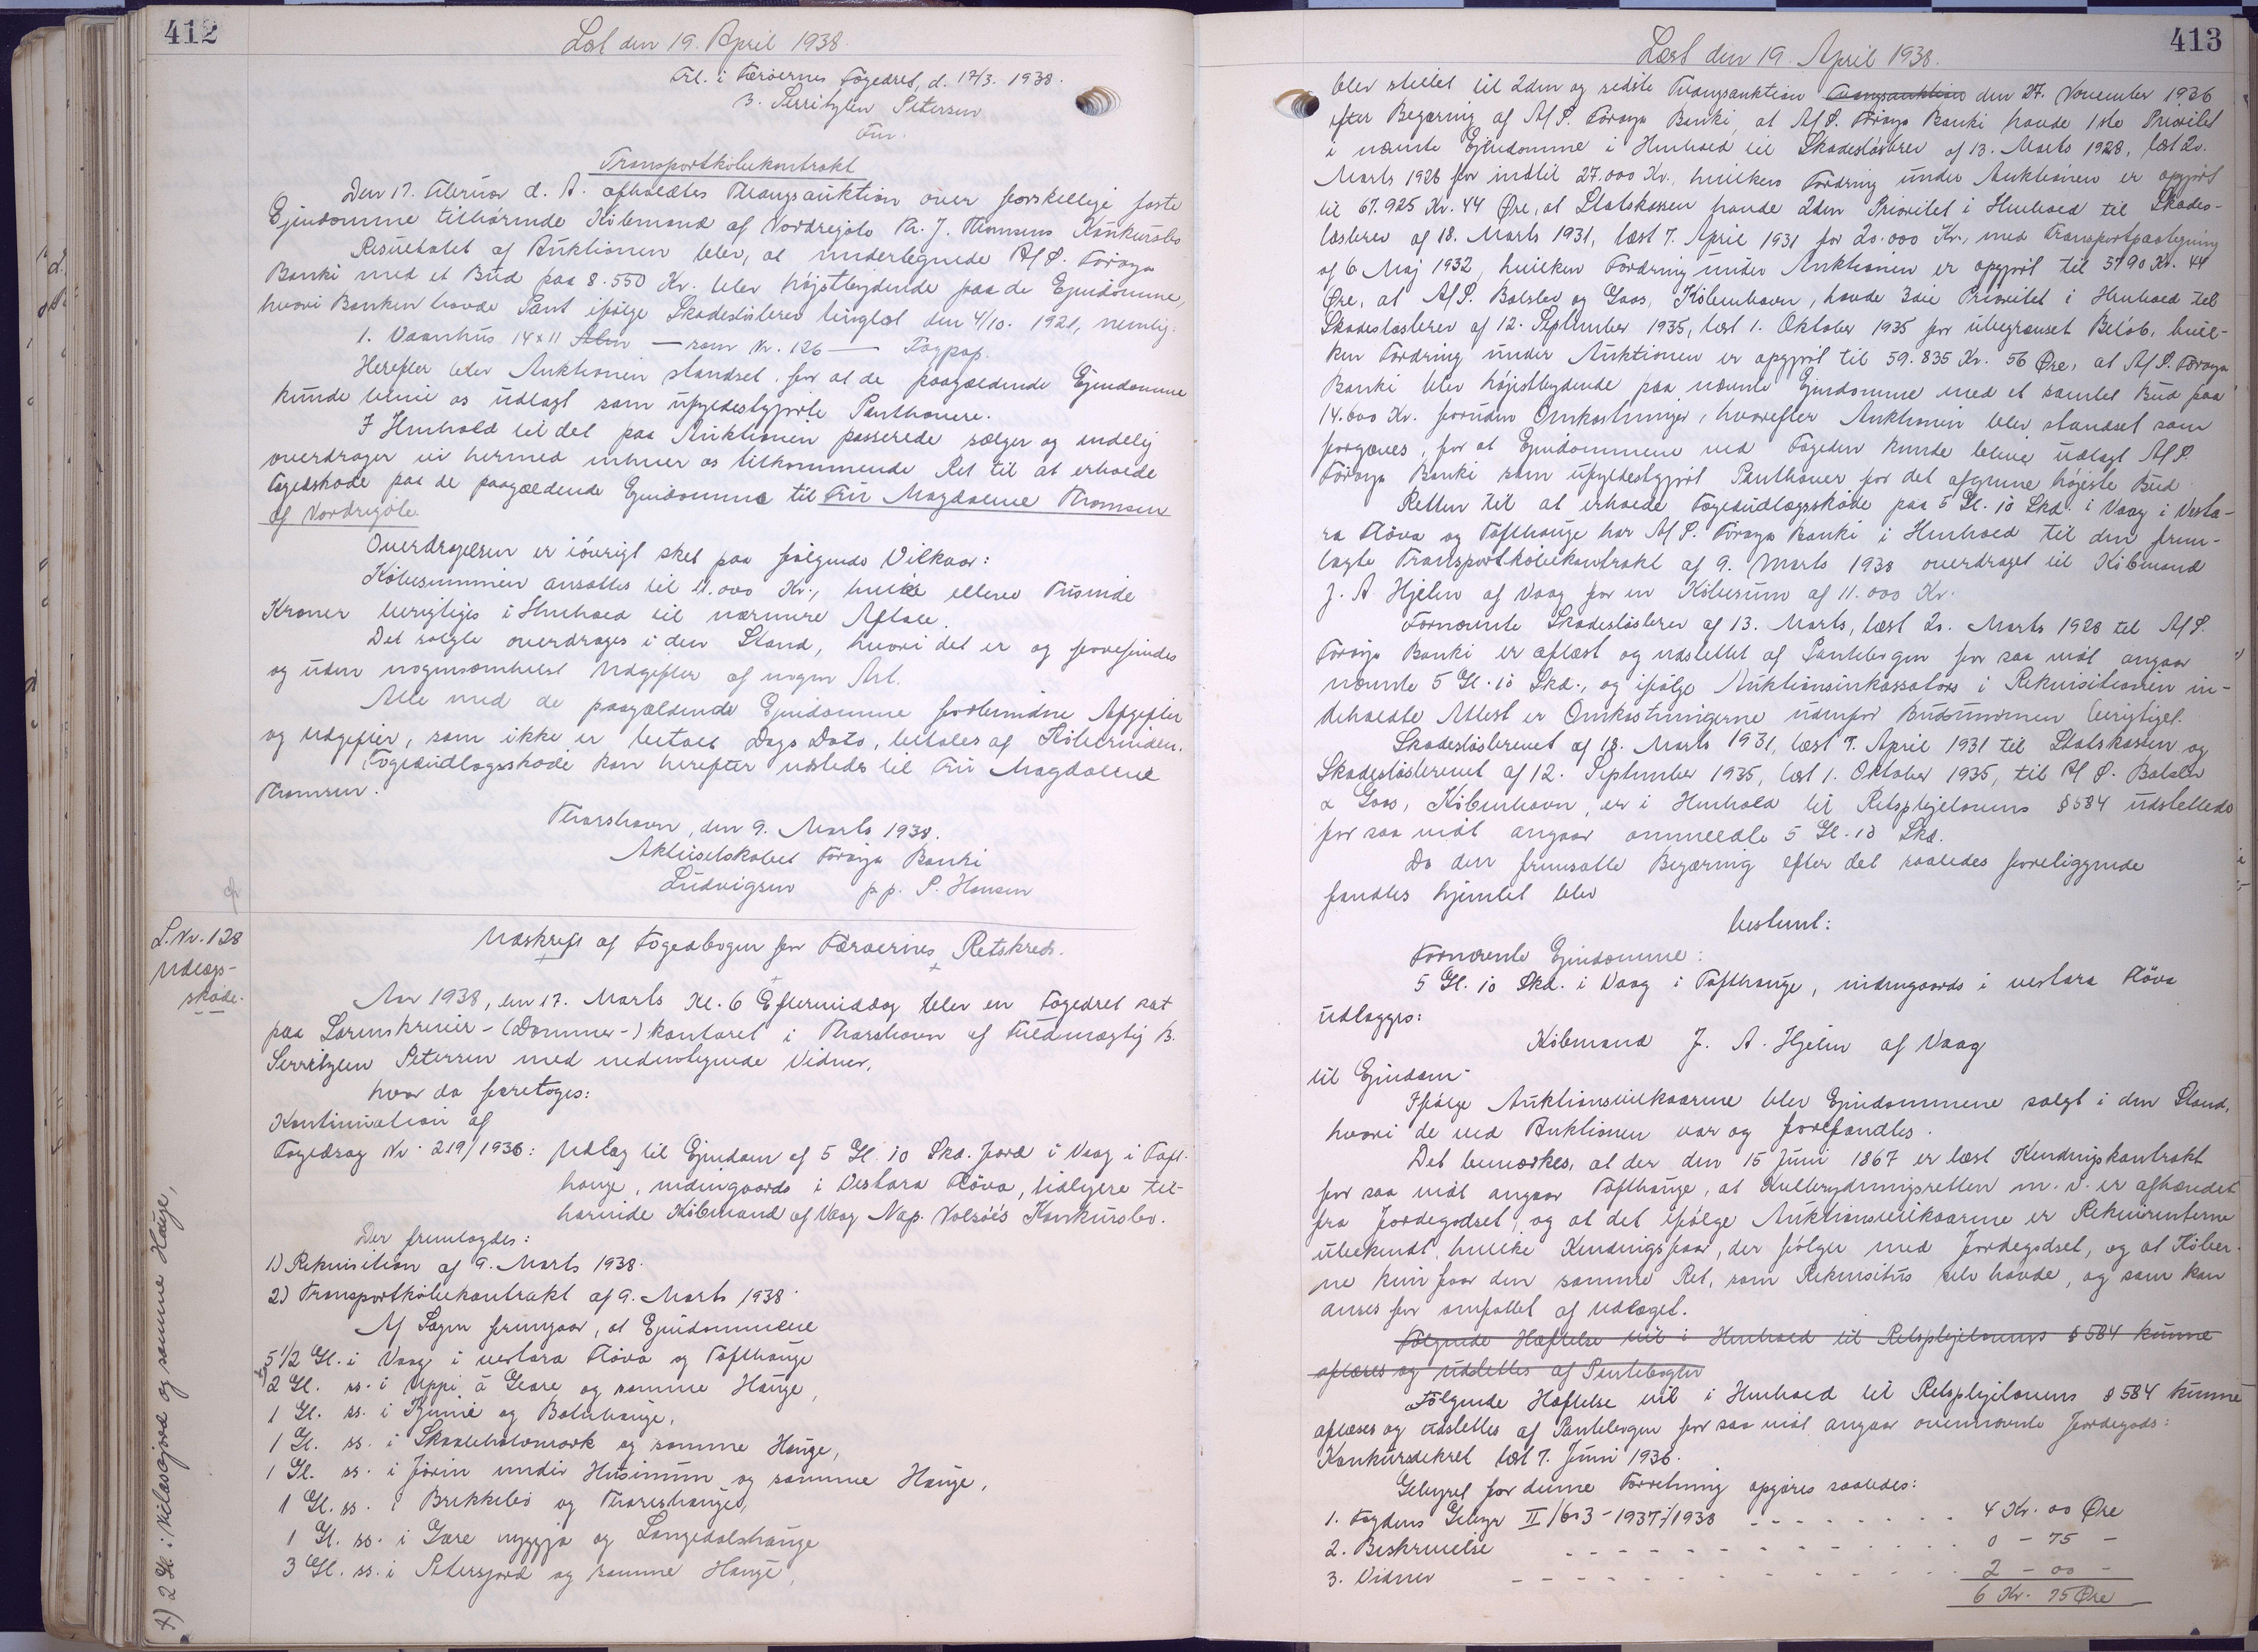 412
Læst den 19. April 1938.
Frl. i Færøernes Fogedret, d. 17/3. 1938.
B. Serritzlen Petersen
Fm.
Transportkøbekontrakt
Den 17. Februar d. A. afholdtes Tvangsauktion over forskellige faste
Ejendomme tilhørende Købmand af Nordregøte Th. J. Thomsens Konkursbo
Resultatet af Auktionen blev, at undertegnede A/S. Føroya
Banki med et Bud paa 8.550 Kr. blev højstbydende paa de Ejendomme,
hvori Banken havde Pant ifølge Skadesløsbrev tinglæst den 4/10. 1921, nemlig:
1. Vaanhus 14x11 Alen — som Nr. 126 — Tagpap.
Herefter blev Auktionen standset for at de paagældende Ejendomme
kunde blive os udlagt som ufyldestgjorte Panthavere.
I Henhold til det paa Auktionen passerede sælger og endelig
overdrager vi hermed enhver os tilkommende Ret til at erholde
Fogedskøde paa de paagældende Ejendomme til Fru Magdalene Thomsen
af Nordregøte.
Overdragelsen er iøvrigt sket paa følgende Vilkaar:
Købesummen ansættes til 11.000 Kr., hvilke elleve Tusinde
Kroner berigtiges i Henhold til nærmere Aftale.
Det solgte overdrages i den Stand, hvori det er og forefindes
og uden nogensomhelst Udgifter af nogen Art.
Alle med de paagældende Ejendomme forbundne Afgifter
og Udgifter, som ikke er betalt Dags Dato, betales af Køberinden.
Fogedudlægsskøde kan herefter udstedes til Fru Magdalene
Thomsen.
Thorshavn, den 9. Marts 1938.
Aktieselskabet Føroya Banki
Ludvigsen pp. P. Hansen
L. Nr. 128
Udlægs-
skøde.
Udskrift af Fogedbogen for Færøernes Retskreds.
Aar 1938, den 17. Marts Kl. 6 Eftermiddag blev en Fogedret sat
paa Sorenskriver-(Dommer-)kontoret i Thorshavn af Fuldmægtig B.
Serritzlen Petersen med nedentegnede Vidner,
hvor da foretoges:
Kontinuation af
Fogedsag Nr. 219/1936: Udlæg til Ejendom af 5 Gl. 10 Skd. Jord i Vaag i Toft-
hauge, indengaards i Vestara Fløva, tidligere til-
hørende Købmand af Vaag Nap. Volsøe's Konkursbo.
Der fremlagdes:
1) Rekvisition af 9. Marts 1938.
2) Transportkøbekontrakt af 9. Marts 1938
Af Sagen fremgaar, at Ejendommene
5 1/2 Gl. i Vaag i vestara Fløva og Tofthauge
x) 2 Gl. ss. i Uppi á Geare og samme Hauge,
1 Gl. ss. i Kjunie og Botnhauge,
1 Gl. ss. i Skaaleholomork og samme Hauge,
1 Gl. ss. i Jørin undir Husinum og samme Hauge,
1 Gl. ss. i Brekkebø og Thoreshauge,
1 Gl. ss. i Gære nyggja og Langedalshauge
3 Gl. ss. i Petersjord og samme Hauge,
x) 2 Gl. i Nilasajord og samme Hauge,
413
Læst den 19. April 1938.
blev stillet til 2den og sidste Tvangsauktion Tvangsauktion den 27. November 1936
efter Begæring af A/S. Føroya Banki, at A/S. Føroya Banki havde 1ste Prioritet
i nævnte Ejendomme i Henhold til Skadesløsbrev af 13. Marts 1928, læst 20.
Marts 1928 for indtil 27.000 Kr., hvilken Fordring under Auktionen er opgjort
til 67.925 Kr. 44 Øre, at Statskassen havde 2den Prioritet i Henhold til Skades-
løsbrev af 18. Marts 1931, læst 7. April 1931 for 20.000 Kr., med Transportpaategning
af 6 Maj 1932, hvilken Fordring under Auktionen er opgjort til 5790 Kr. 44
Øre, at A/S. Balslev og Goos, København, havde 3die Prioritet i Henhold til
Skadesløsbrev af 12. September 1935, læst 1. Oktober 1935 for ubegrænset Beløb, hvil-
ken Fordring under Auktionen er opgjort til 59.835 Kr. 56 Øre, at A/S. Føroya
Banki blev højstbydende paa nævnte Ejendomme med et samlet Bud paa
14.600 Kr. foruden Omkostninger, hvorefter Auktionen blev standset som
forgæves, for at Ejendommene ved Fogeden kunde blive udlagt A/S.
Føroya Banki som ufyldestgjort Panthaver for det afgivne højeste Bud.
Retten til at erholde Fogedudlægsskøde paa 5 Gl. 10 Skd. i Vaag i Vesta-
ra Fløva og Tofthauge har A/S. Føroya Banki i Henhold til den frem-
lagte Transportkøbekontrakt af 9. Marts 1938 overdraget til Købmand
J. A. Hjelm af Vaag for en Købesum af 11.000 Kr.
Fornævnte Skadesløsbrev af 13. Marts, læst 20. Marts 1928 til A/S.
Føroya Banki er aflæst og udslettet af Pantebogen for saa vidt angaar
nævnte 5 Gl. 10 Skd., og ifølge Auktionsinkassators i Rekvisitionen in-
deholdte Attest er Omkostningerne udenfor Budsummen berigtiget.
Skadesløsbrevet af 18. Marts 1931, læst 7. April 1931 til Statskassen og
Skadesløsbrevet af 12. September 1935, læst 1. Oktober 1935, til A/S. Balslev
& Goos, København, er i Henhold til Retsplejelovens § 584 udslettede
for saa vidt angaar ommeldte 5 Gl. 10 Skd.
Da den fremsatte Begæring efter det saaledes foreliggende
fandtes hjemlet blev
bestemt:
Fornævnte Ejendomme:
5 Gl. 10 Skd. i Vaag i Tofthauge, indengaards i vestara Fløva
udlægges:
Købmand J. A. Hjelm af Vaag
til Ejendom.
Ifølge Auktionsvilkaarene blev Ejendommene solgt i den Stand,
hvori de ved Auktionen var og forefandtes.
Det bemærkes, at der den 15 Juni 1867 er læst Kendingskontrakt
for saa vidt angaar Tofthauge, at Kulbrydningsretten m. v. er afhændet
fra Jordegodset, og at det ifølge Auktionsvilkaarene er Rekvirenterne
ubekendt, hvilke Kendingsfaar, der følger med Jordegodset, og at Køber-
ne kun faar den samme Ret, som Rekvisitus selv havde, og som kan
anses for omfattet af Udlæget.
Følgende Hæftelse vil i Henhold til Retsplejelovens § 584 kunne
aflæses og udslettes af Pantebogen
Følgende Hæftelse vil i Henhold til Retsplejelovens § 584 kunne
aflæses og udslettes af Pantebogen for saa vidt angaar ovennævnte Jordegods:
Konkursdekret læst 7. Juni 1936.
Gebyret for denne Forretning opgøres saaledes:
1. Fogdens Gebyr II/603-1937/1938 - - - - - 4 Kr. 00 Øre
2. Beskrivelse - - - - - 0 - 75 -
3. Vidner - - - - - 2 - 00 -
6 Kr. 75 Øre